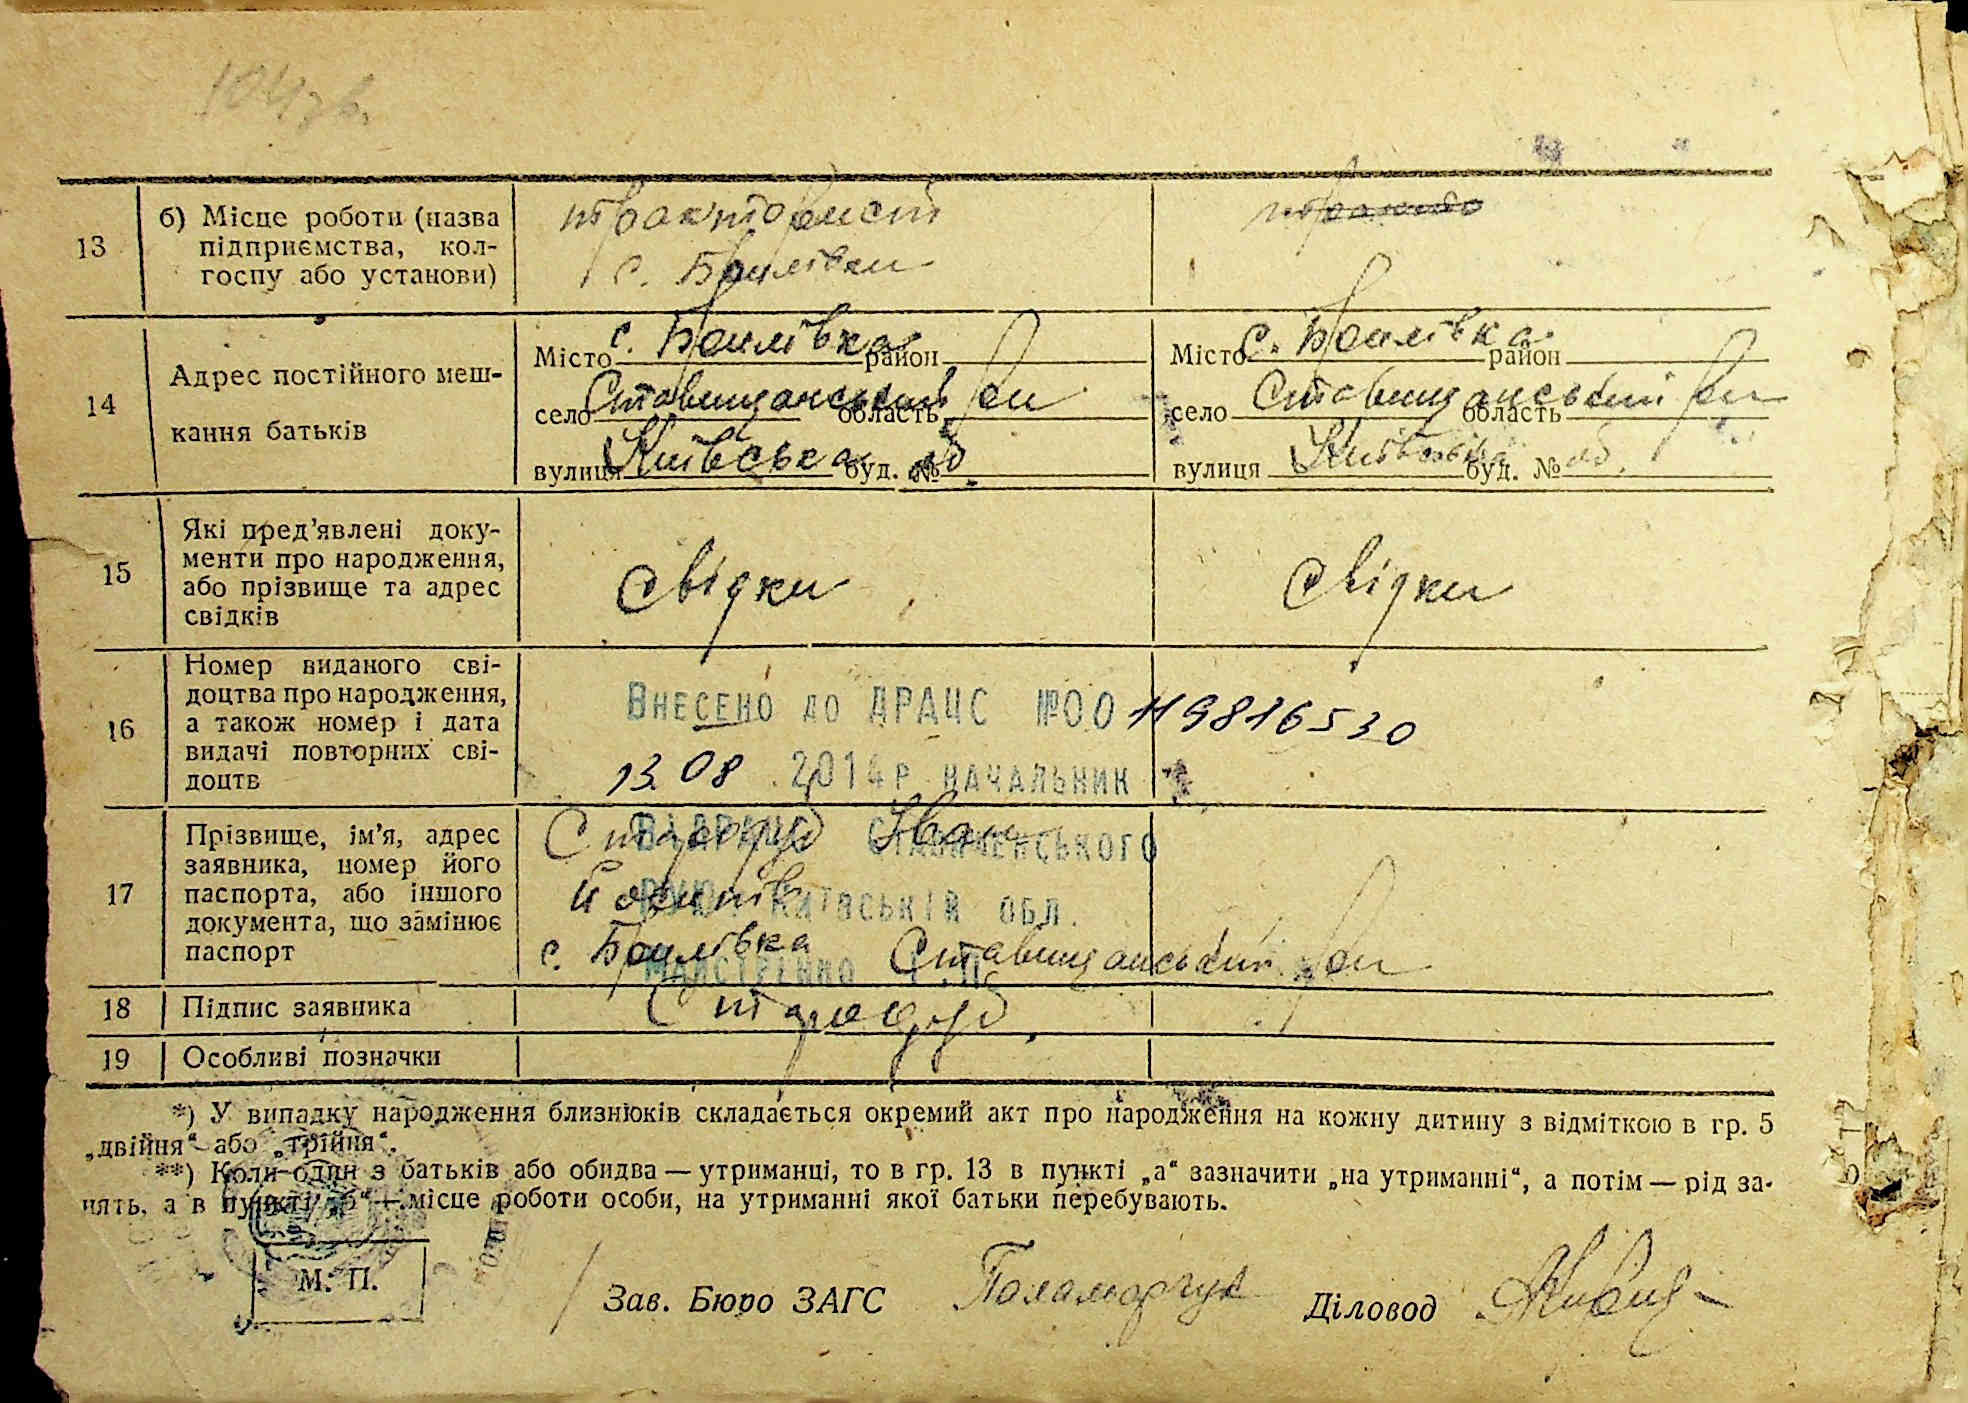 104 зв.
13 б) Місце роботи (назва підприємства, кол-госпу або установи) тракторист
с. Брилівки
14 Адрес постійного меш-кання батьків
Місто с. Брилівка район Місто с. Брилівка район
село Ставищанський р-н область село Ставищанський р-н область
вулиця Київська об. буд. № вулиця Київська об. буд. №
15 Які пред'явлені доку-
менти про народження,
або прізвище та адрес
свідків
свідки свідки
16 Номер виданого сві-
доцтва про народження,
а також номер і дата
видачі повторних сві-
доцтв
Внесено до ДРАЦС №00119816530
13.08.2014р начальник
ВДРАЦС Ставищенського
РУЮ Київській обл.
17 Прізвище, ім'я, адрес
заявника, номер його
паспорта, або іншого
документа, що замінює
паспорт
Іван
с. Брилівка Ставищанський р-н
18 Підпис заявника
19 Особливі позначки
*) У випадку народження близнюків складається окремий акт про народження на кожну дитину з відміткою в гр. 5
„двійня“ або „трійня“.
**) Коли один з батьків або обидва — утриманці, то в гр. 13 в пункті „а“ зазначити „на утриманні“, а потім — рід за-
нять, а в пункті „б“ — місце роботи особи, на утриманні якої батьки перебувають.
М. П.
Зав. Бюро ЗАГС Паламарчук Діловод